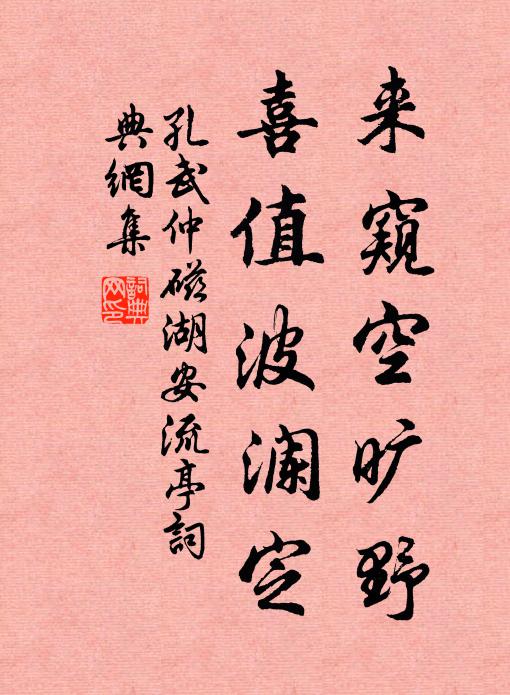 来窥空旷野
喜值波澜定
孔武仲磁湖安流亭词
典網集
詞典網印